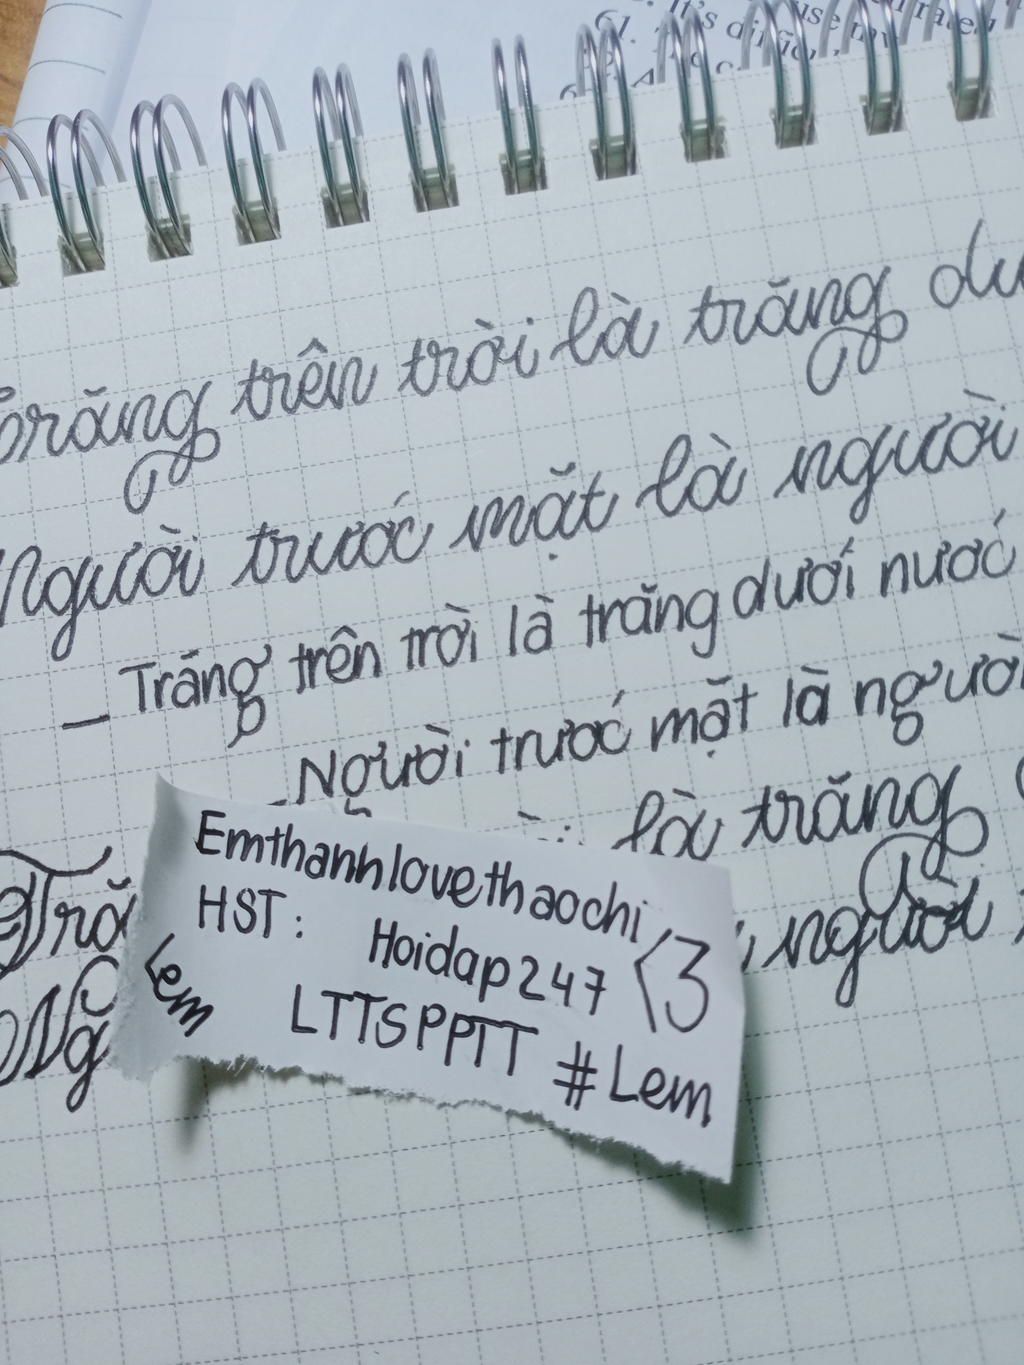 61. It's
Trăng trên trời là trăng
Người trước mặt là người
_ Trăng trên trời là trăng dưới nước
_ Người trước mặt là người
là trăng
Tră người
Ng
Emthanhlovethaochi
HST: Hoidap247 <3
Lem LTTSPPTT #Lem